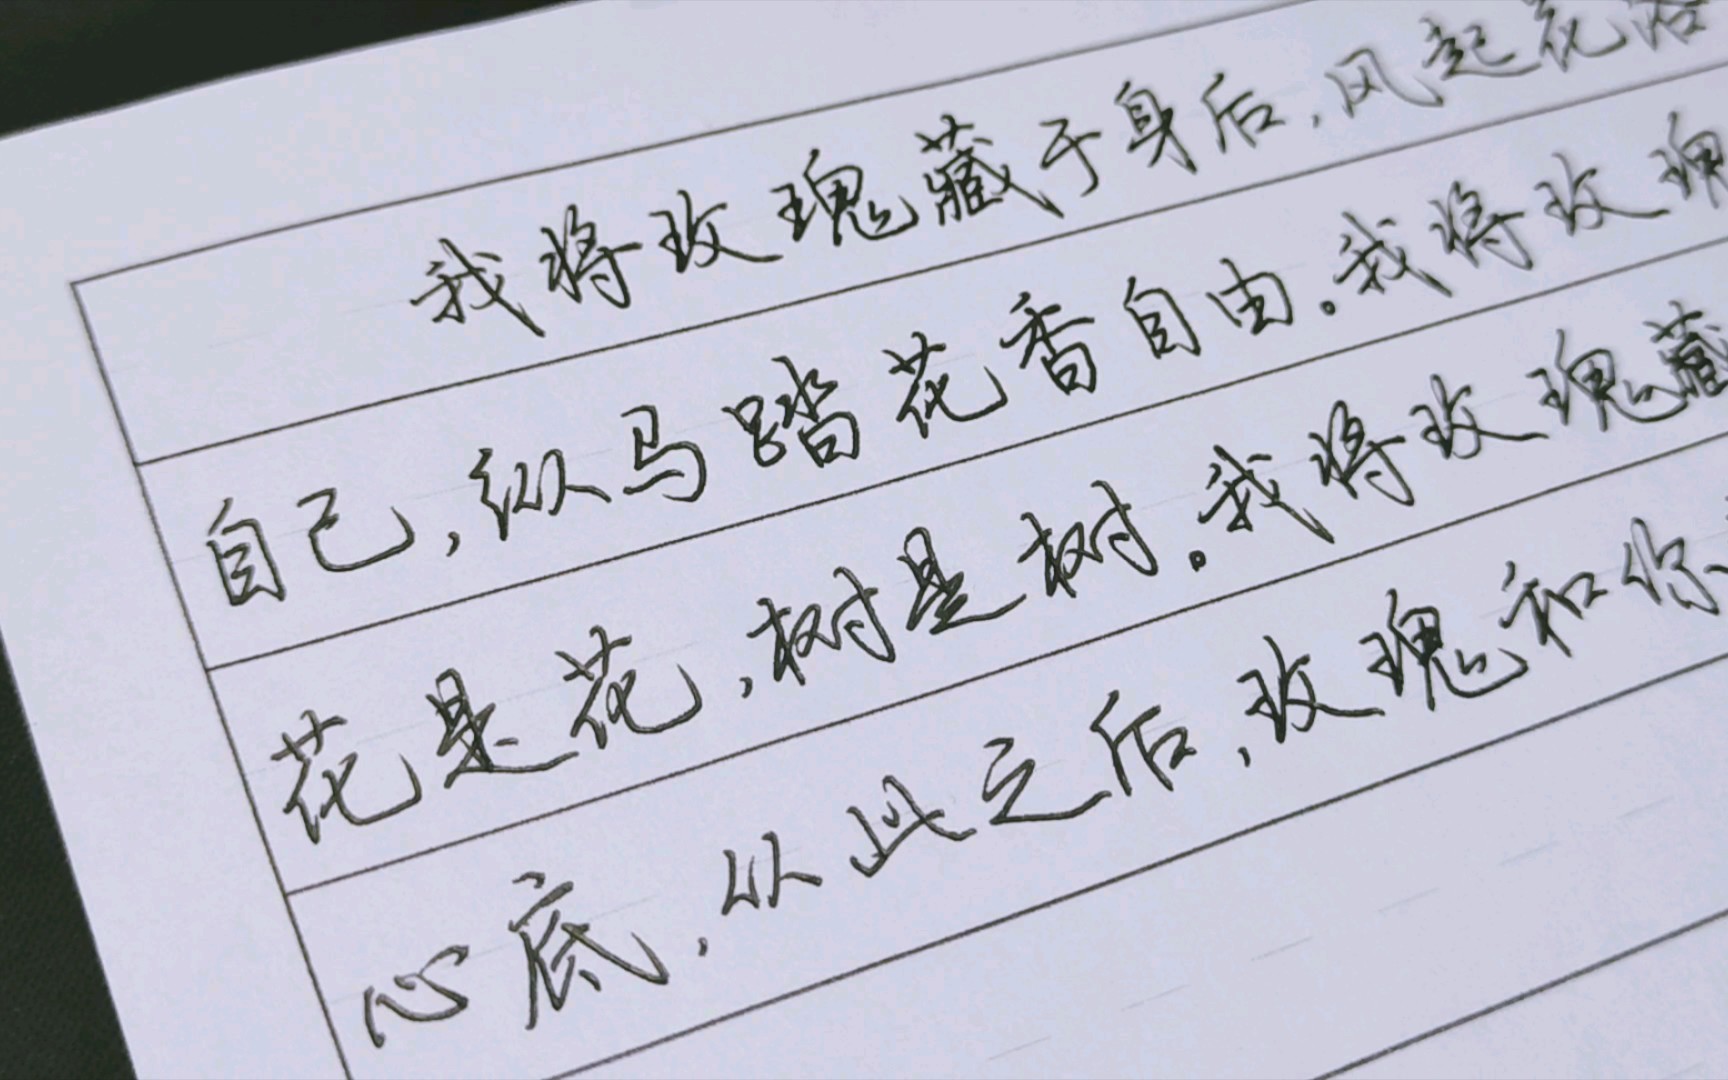 我将玫瑰藏于身后,风起花落
自己,纵马踏花香自由。我将玫瑰
花是花,树是树。我将玫瑰藏
心底,从此之后,玫瑰和你